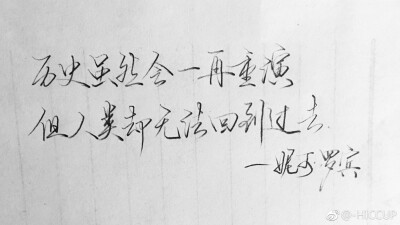 历史虽然会一再重演
但人类却无法回到过去.
—妮可·罗宾
@-HICCUP